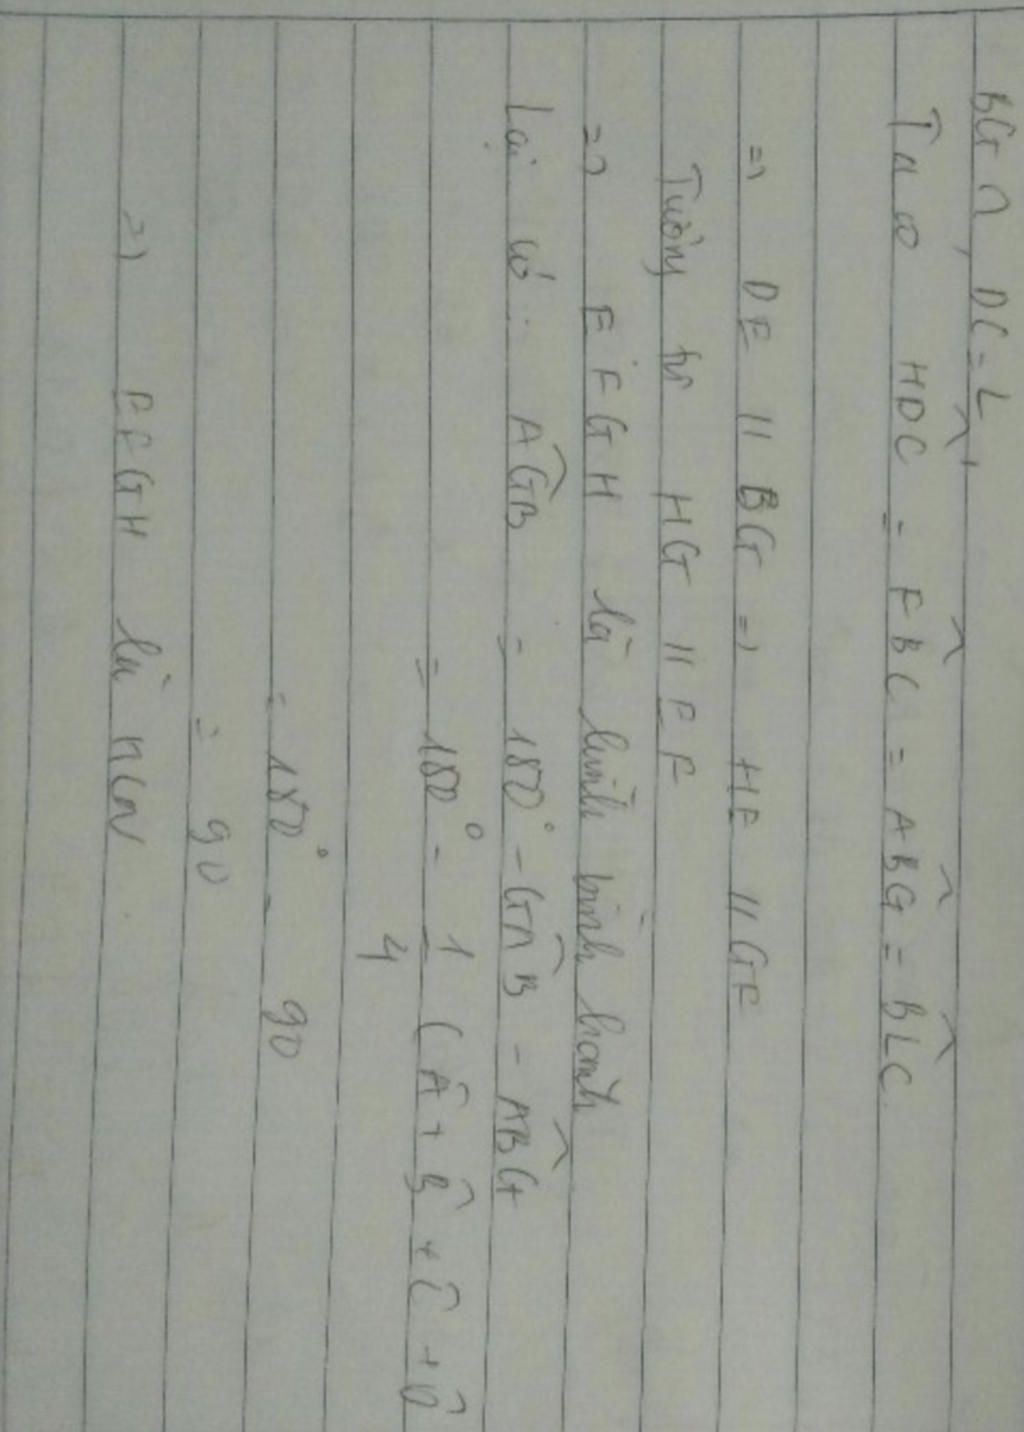 BG ∩ DC = L
Ta có HDC = FBC = ABG = BLC
=> DE // BG => HE // GF
Tương tự HG // EF
=> EFGH là hình bình hành
Lại có: AGB = 180° - GAB - ABG
= 180° - 1/4 (A + B + C + D
= 180° - 90
= 90
=> EFGH là HCN